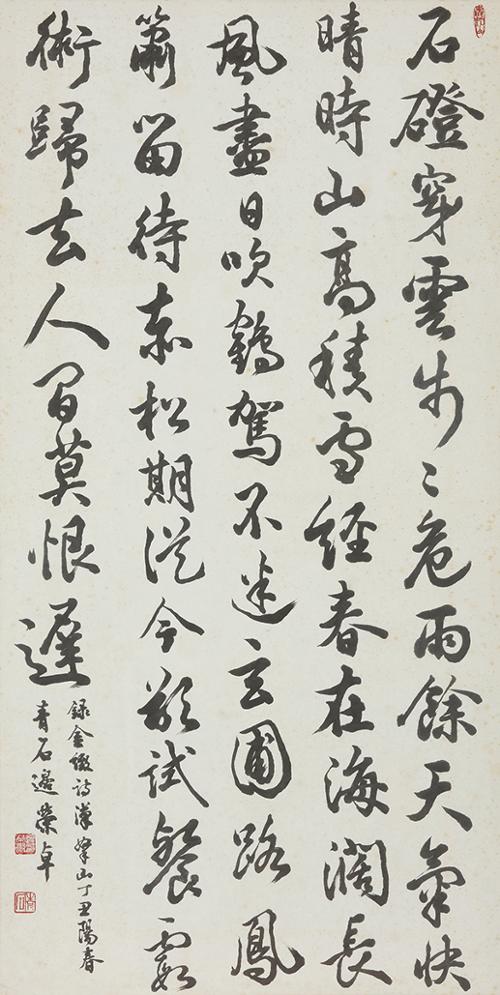 石磴穿雲步〻危雨餘天氣快
晴時山高積雪經春在海濶長
風盡日吹鶴駕不迷玄圃路鳳
簫留待赤松期從今欲試餐霞
術歸去人間莫恨遲
錄金緻詩漢拏山丁丑陽春
青石邊榮卓